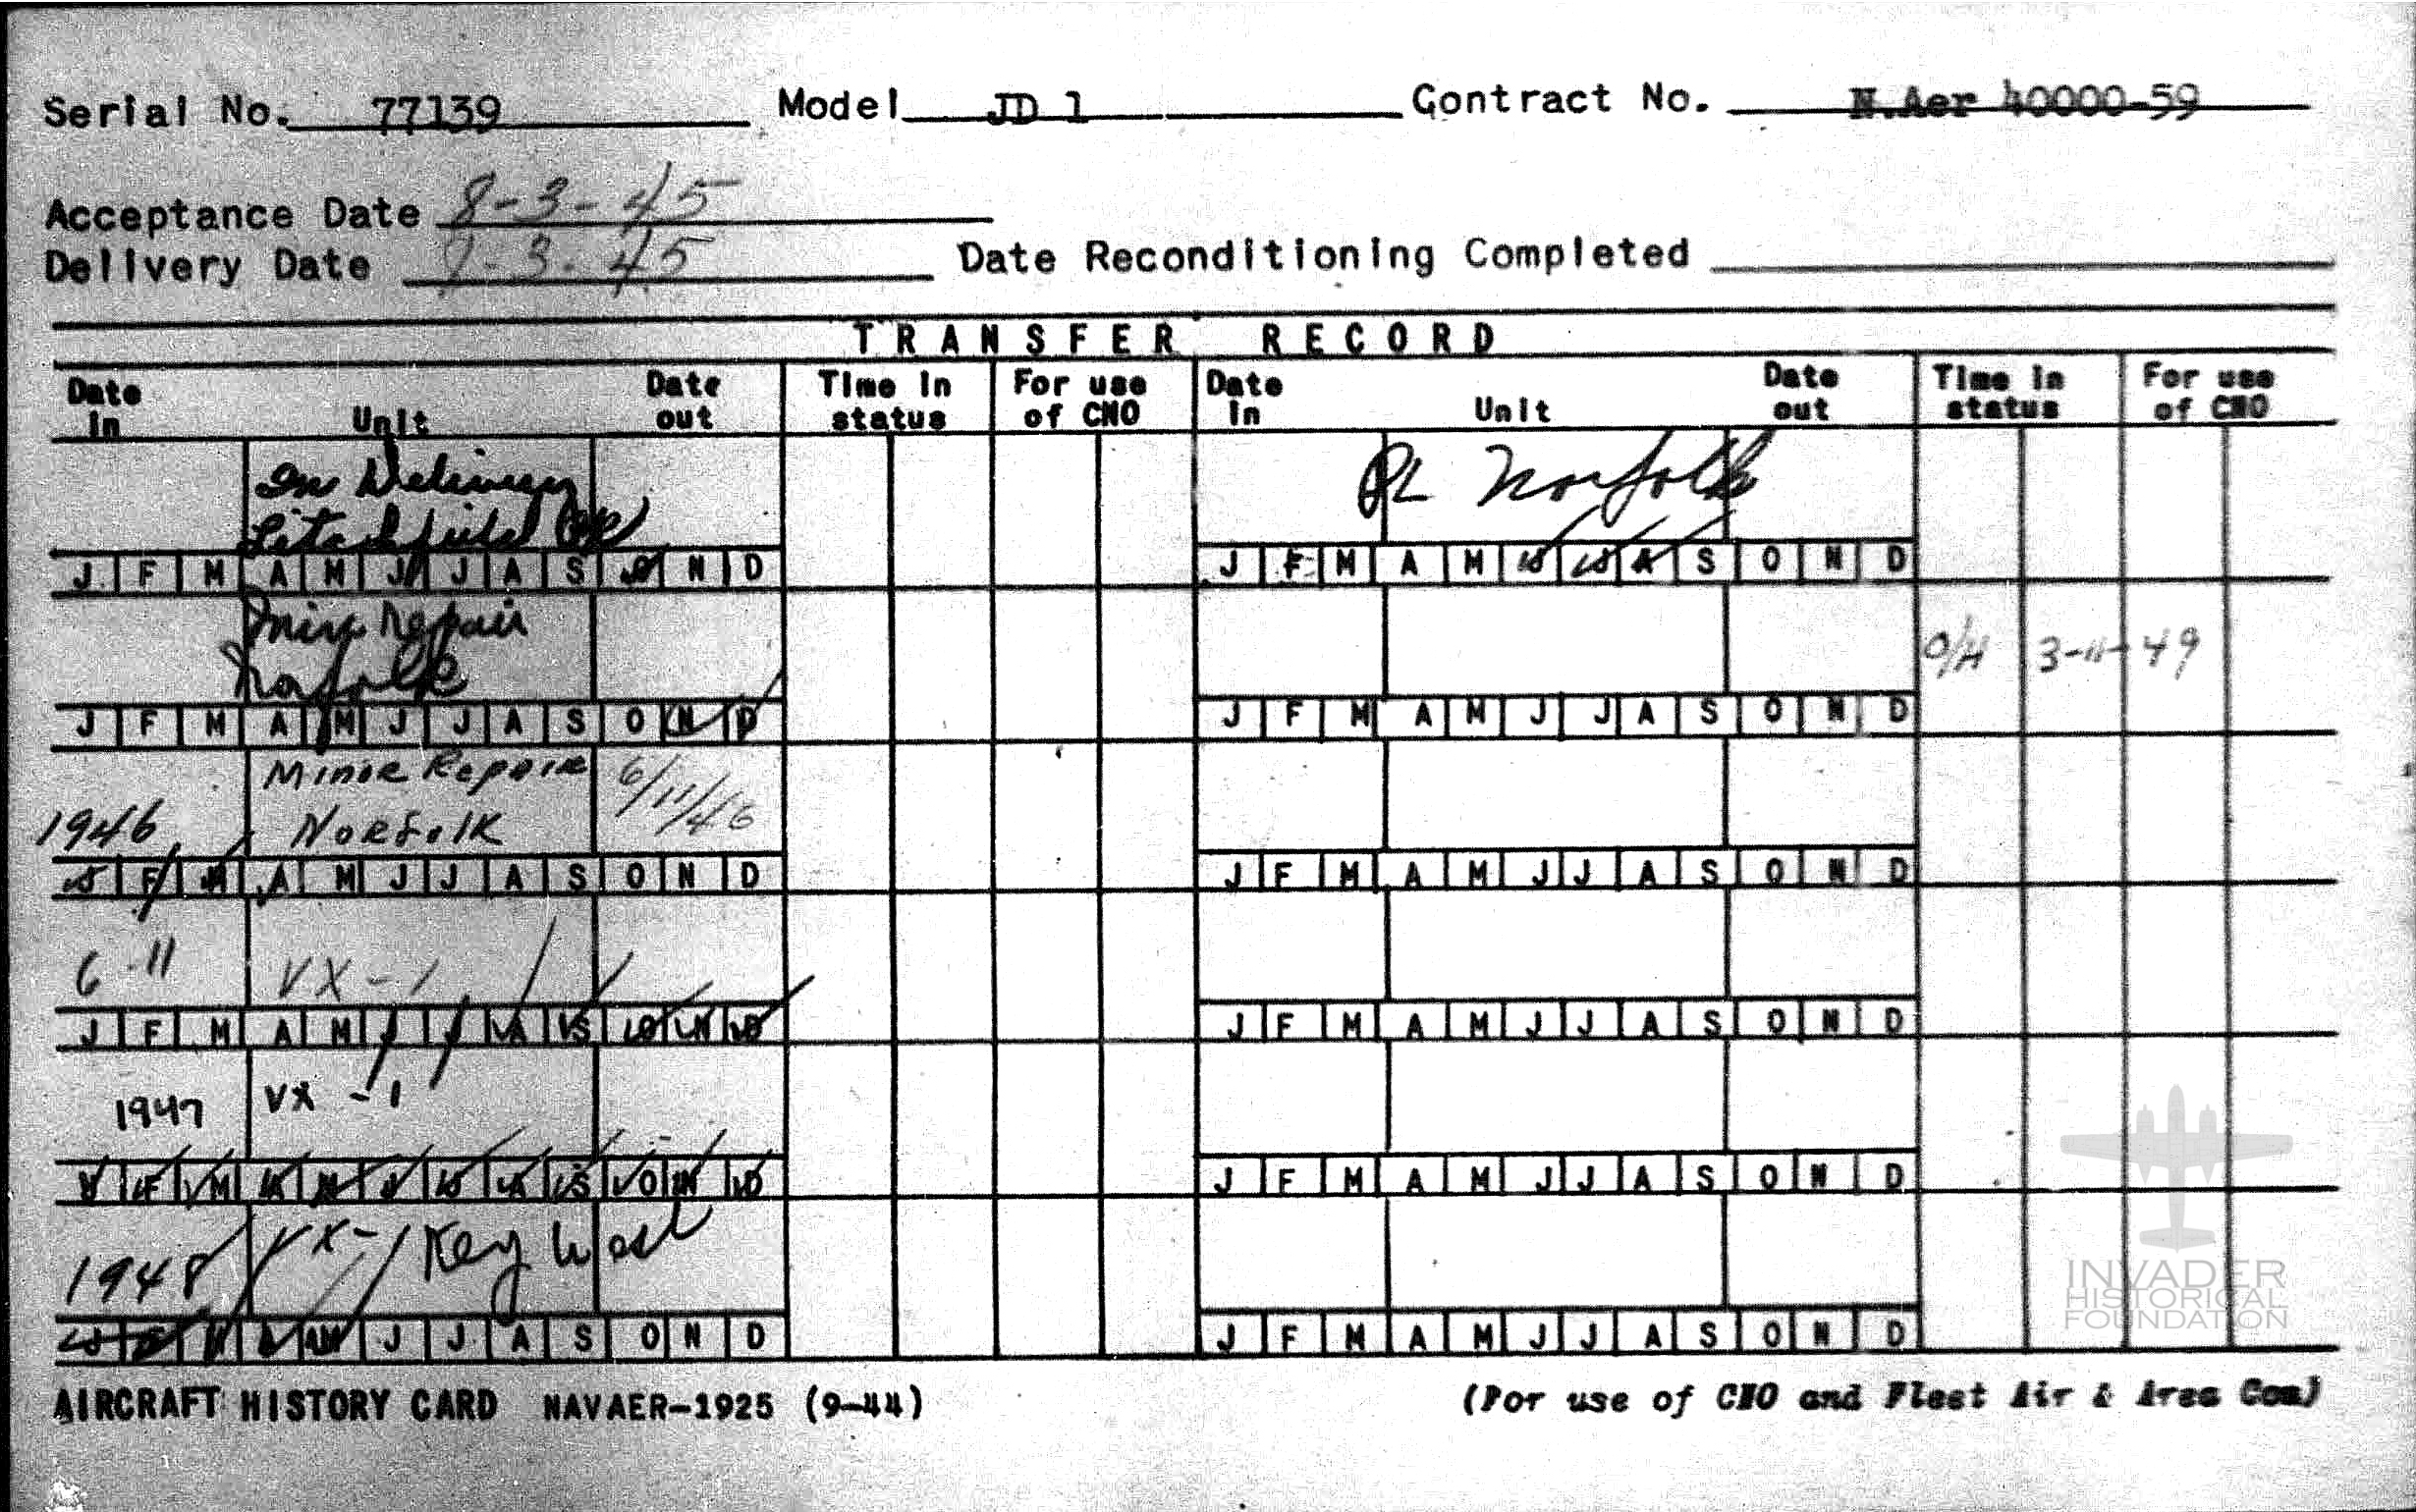 Serial No. 77139 Model JD 1 Contract No. N.Aer 40000-59
Acceptance Date 8-3-45
Delivery Date 9-3-45 Date Reconditioning Completed
TRANSFER RECORD
Date in Unit Date out Time in status For use of CNO Date in Unit Date out Time in status For use of CNO
In Delivery
Litchfield
J F M A M J J A S O N D
Repair
Norfolk
J F M A M J J A S O N D
Minor Repair 6/11/46
1946 Norfolk
J F M A M J J A S O N D
6-11 VX-1
J F M A M J J A S O N D
1947 VX-1
J F M A M J J A S O N D
1948 VX-1 Key West
J F M A M J J A S O N D
Norfolk
J F M A M J J A S O N D
O/H 3-11-49
J F M A M J J A S O N D
J F M A M J J A S O N D
J F M A M J J A S O N D
J F M A M J J A S O N D
J F M A M J J A S O N D
INVADER
HISTORICAL
FOUNDATION
AIRCRAFT HISTORY CARD NAVAER-1925 (9-44) (For use of CNO and Fleet Air & Area Com)